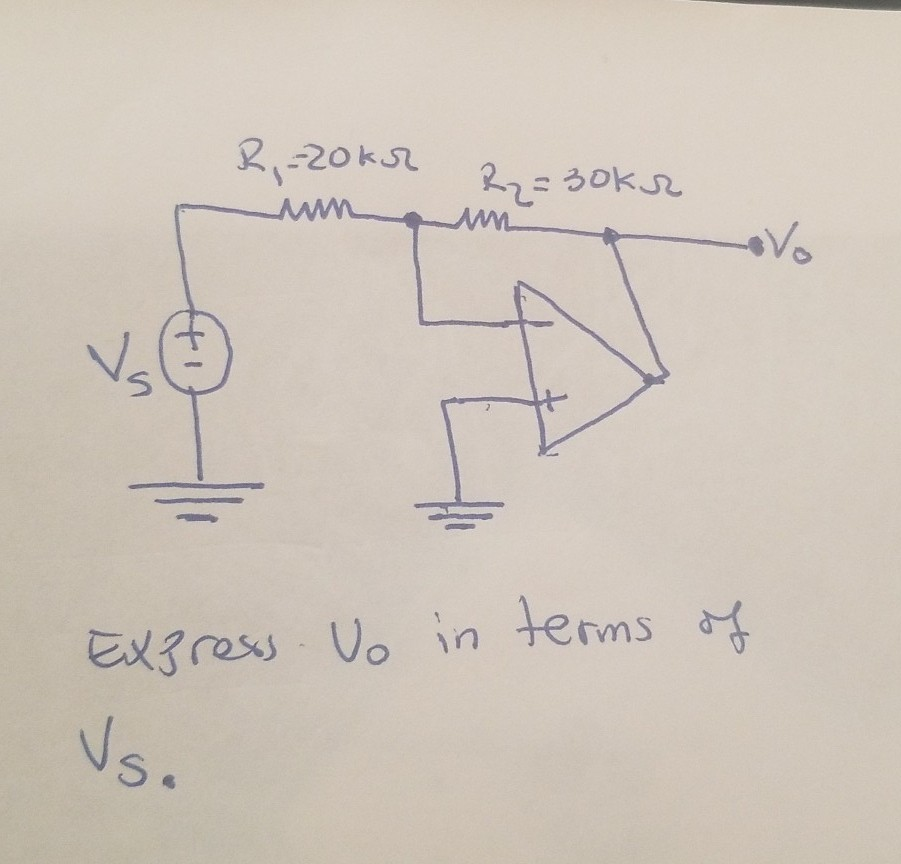 R₁=20kΩ
R₂=30kΩ
Vo
Vs
+
-
-
+
Ex3ress Vo in terms of
Vs.